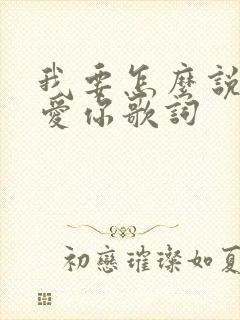 我要怎麼說
愛你歌詞
初戀璀璨如夏